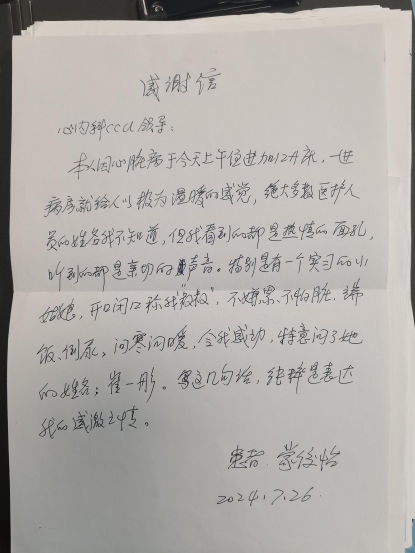 感谢信
心内科ccu领导：
本人因心脏病于今天上午住进加12床，一进
病房就给人以极为温暖的感觉，绝大多数医护人
员的姓名我不知道，但我看到的都是热情的面孔，
听到的都是亲切的声音。特别是有一个实习的小
姑娘，开口闭口称我“叔叔”，不嫌累、不怕脏、端
饭、倒尿、问寒问暖，令我感动，特意问了她
的姓名：崔一彤。写这几句话，纯粹是表达
我的感激之情。
患者：蒙俊怡
2024.7.26.